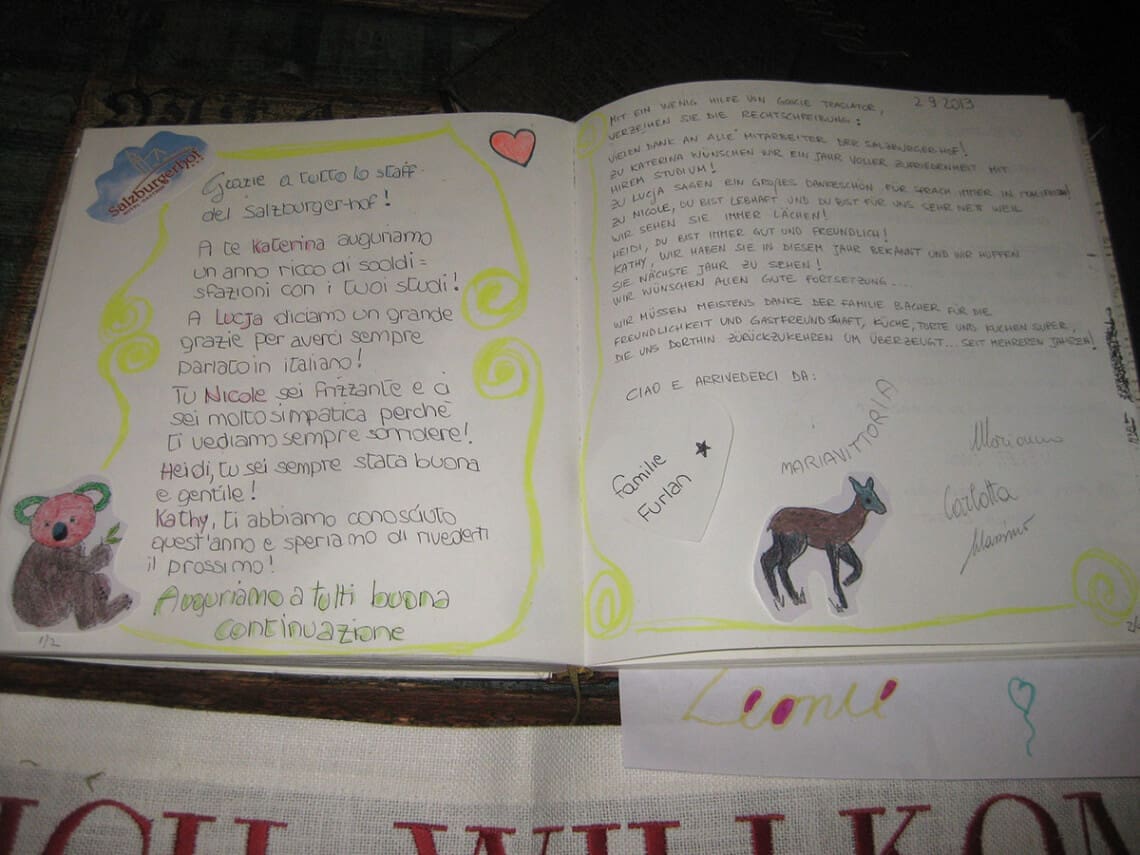 Salzburgerhof
Grazie a tutto lo staff
del Salzburger-hof!
A te Katerina auguriamo
un anno ricco di soddi=
sfazioni con i tuoi studi!
A Lucja diciamo un grande
grazie per averci sempre
parlato in italiano!
Tu Nicole sei frizzante e ci
sei molto simpatica perchè
ti vediamo sempre sorridere!
Heidi, tu sei sempre stata buona
e gentile!
Kathy, ti abbiamo conosciuto
quest'anno e speriamo di rivederti
il prossimo!
Auguriamo a tutti buona
continuazione
1/2
2 9 2013
MIT EIN WENIG HILFE VON GOOGLE TRASLATOR,
VERZEIHEN SIE DIE RECHTSCHREIBUNG:
VIELEN DANK AN ALLE MITARBEITER DER SALZBURGERHOF!
ZU KATERINA WÜNSCHEN WIR EIN JAHR VOLLER ZUFRIEDENHEIT MIT
IHREM STUDIUM!
ZU LUCJA SAGEN EIN GROßES DANKESCHÖN FÜR SPRACH IMMER IN ITALIENISCH!
ZU NICOLE, DU BIST LEBHAFT UND DU BIST FÜR UNS SEHR NETT WEIL
WIR SEHEN SIE IMMER LÄCHEN!
HEIDI, DU BIST IMMER GUT UND FREUNDLICH!
KATHY, WIR HABEN SIE IN DIESEM JAHR BEKANNT UND WIR HOFFEN
SIE NÄCHSTE JAHR ZU SEHEN!
WIR WÜNSCHEN ALLEN GUTE FORTSETZUNG....
WIR MÜSSEN MEISTENS DANKE DER FAMILIE BACHER FÜR DIE
FREUNDLICHKEIT UND GASTFREUNDSCHAFT, KÜCHE, TORTE UND KUCHEN SUPER,
DIE UNS DORTHIN ZURÜCKZUKEHREN UM ÜBERZEUGT... SEIT MEHREREN JAHREN!
CIAO E ARRIVEDERCI DA:
Familie
Furlan
MARIAVITTORIA
Carlotta
Massimo
Leonie
ICH WILLKOM